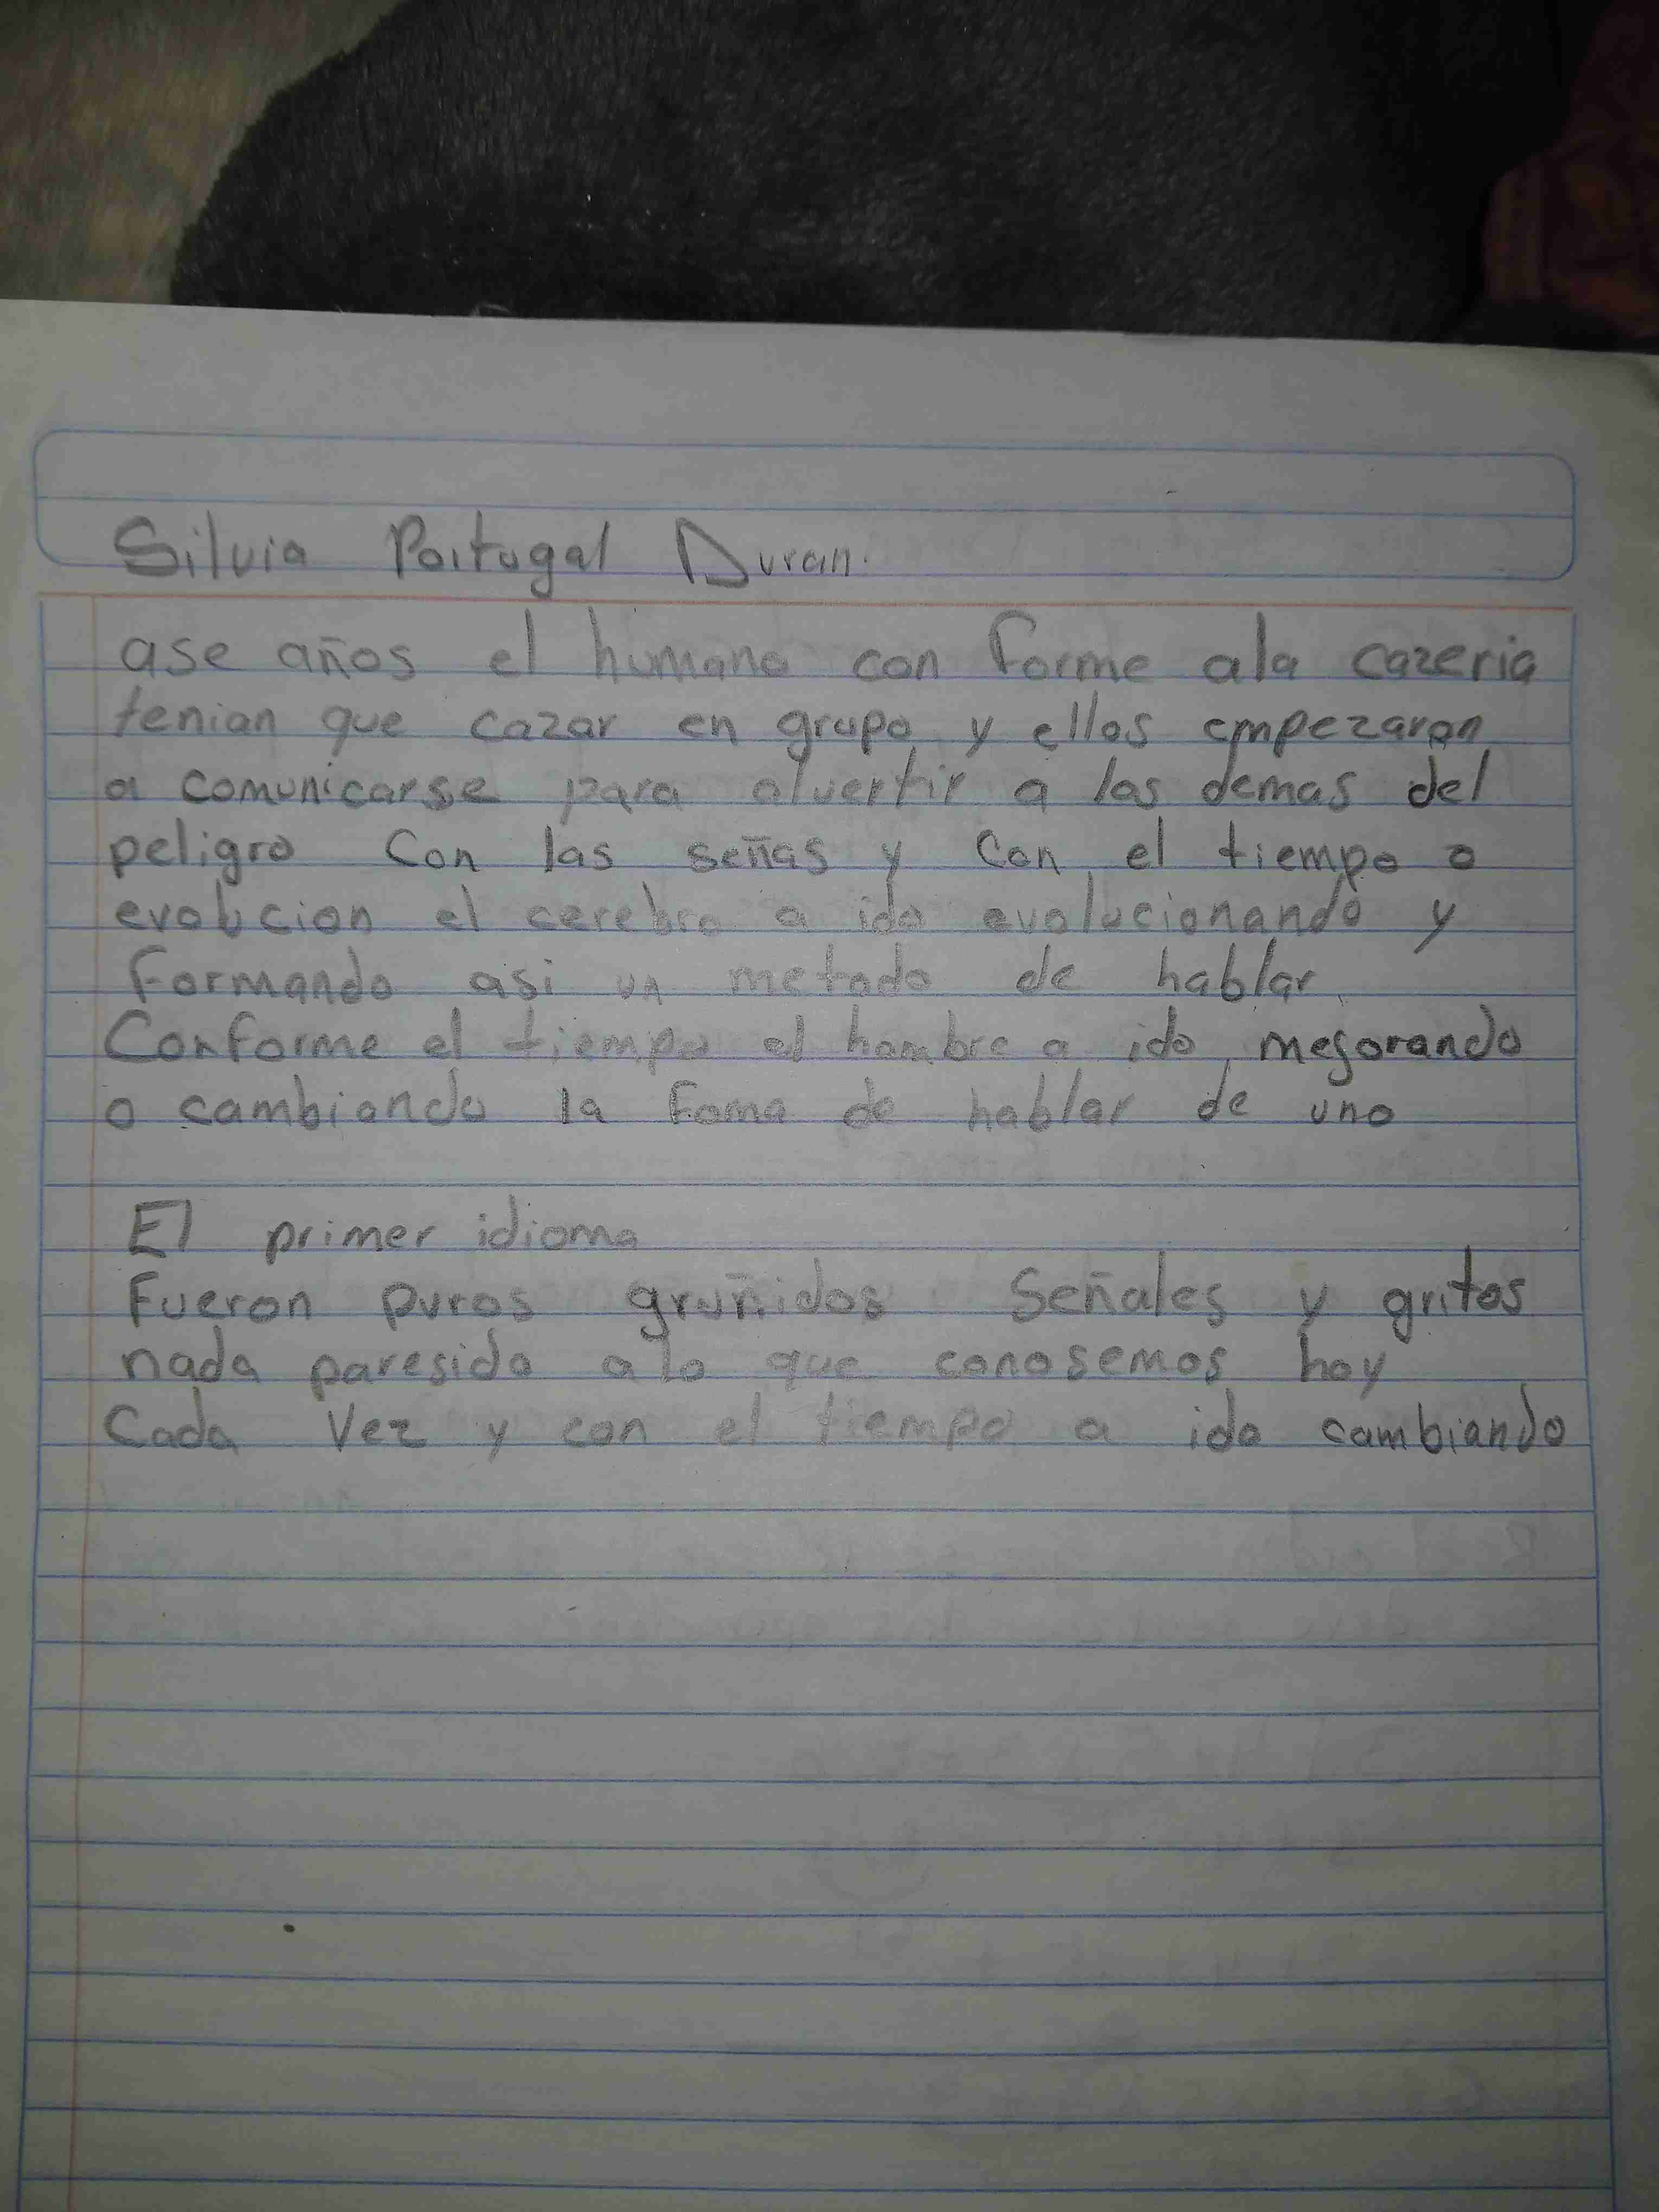 Silvia Portugal Duran.
ase años el humano con forme ala cazeria
tenian que cazar en grupo y ellos empezaron
a comunicarse para alvertir a los demas del
peligro Con las señas y con el tiempo o
evolucion el cerebro a ido evolucionando y
Formando asi un metodo de hablar.
Conforme el tiempo el hombre a ido mejorando
o cambiando la Foma de hablar de uno
El primer idioma
Fueron puros gruñidos Señales y gritos
nada paresido alo que conosemos hoy
Cada Vez y con el tiempo a ido cambiando